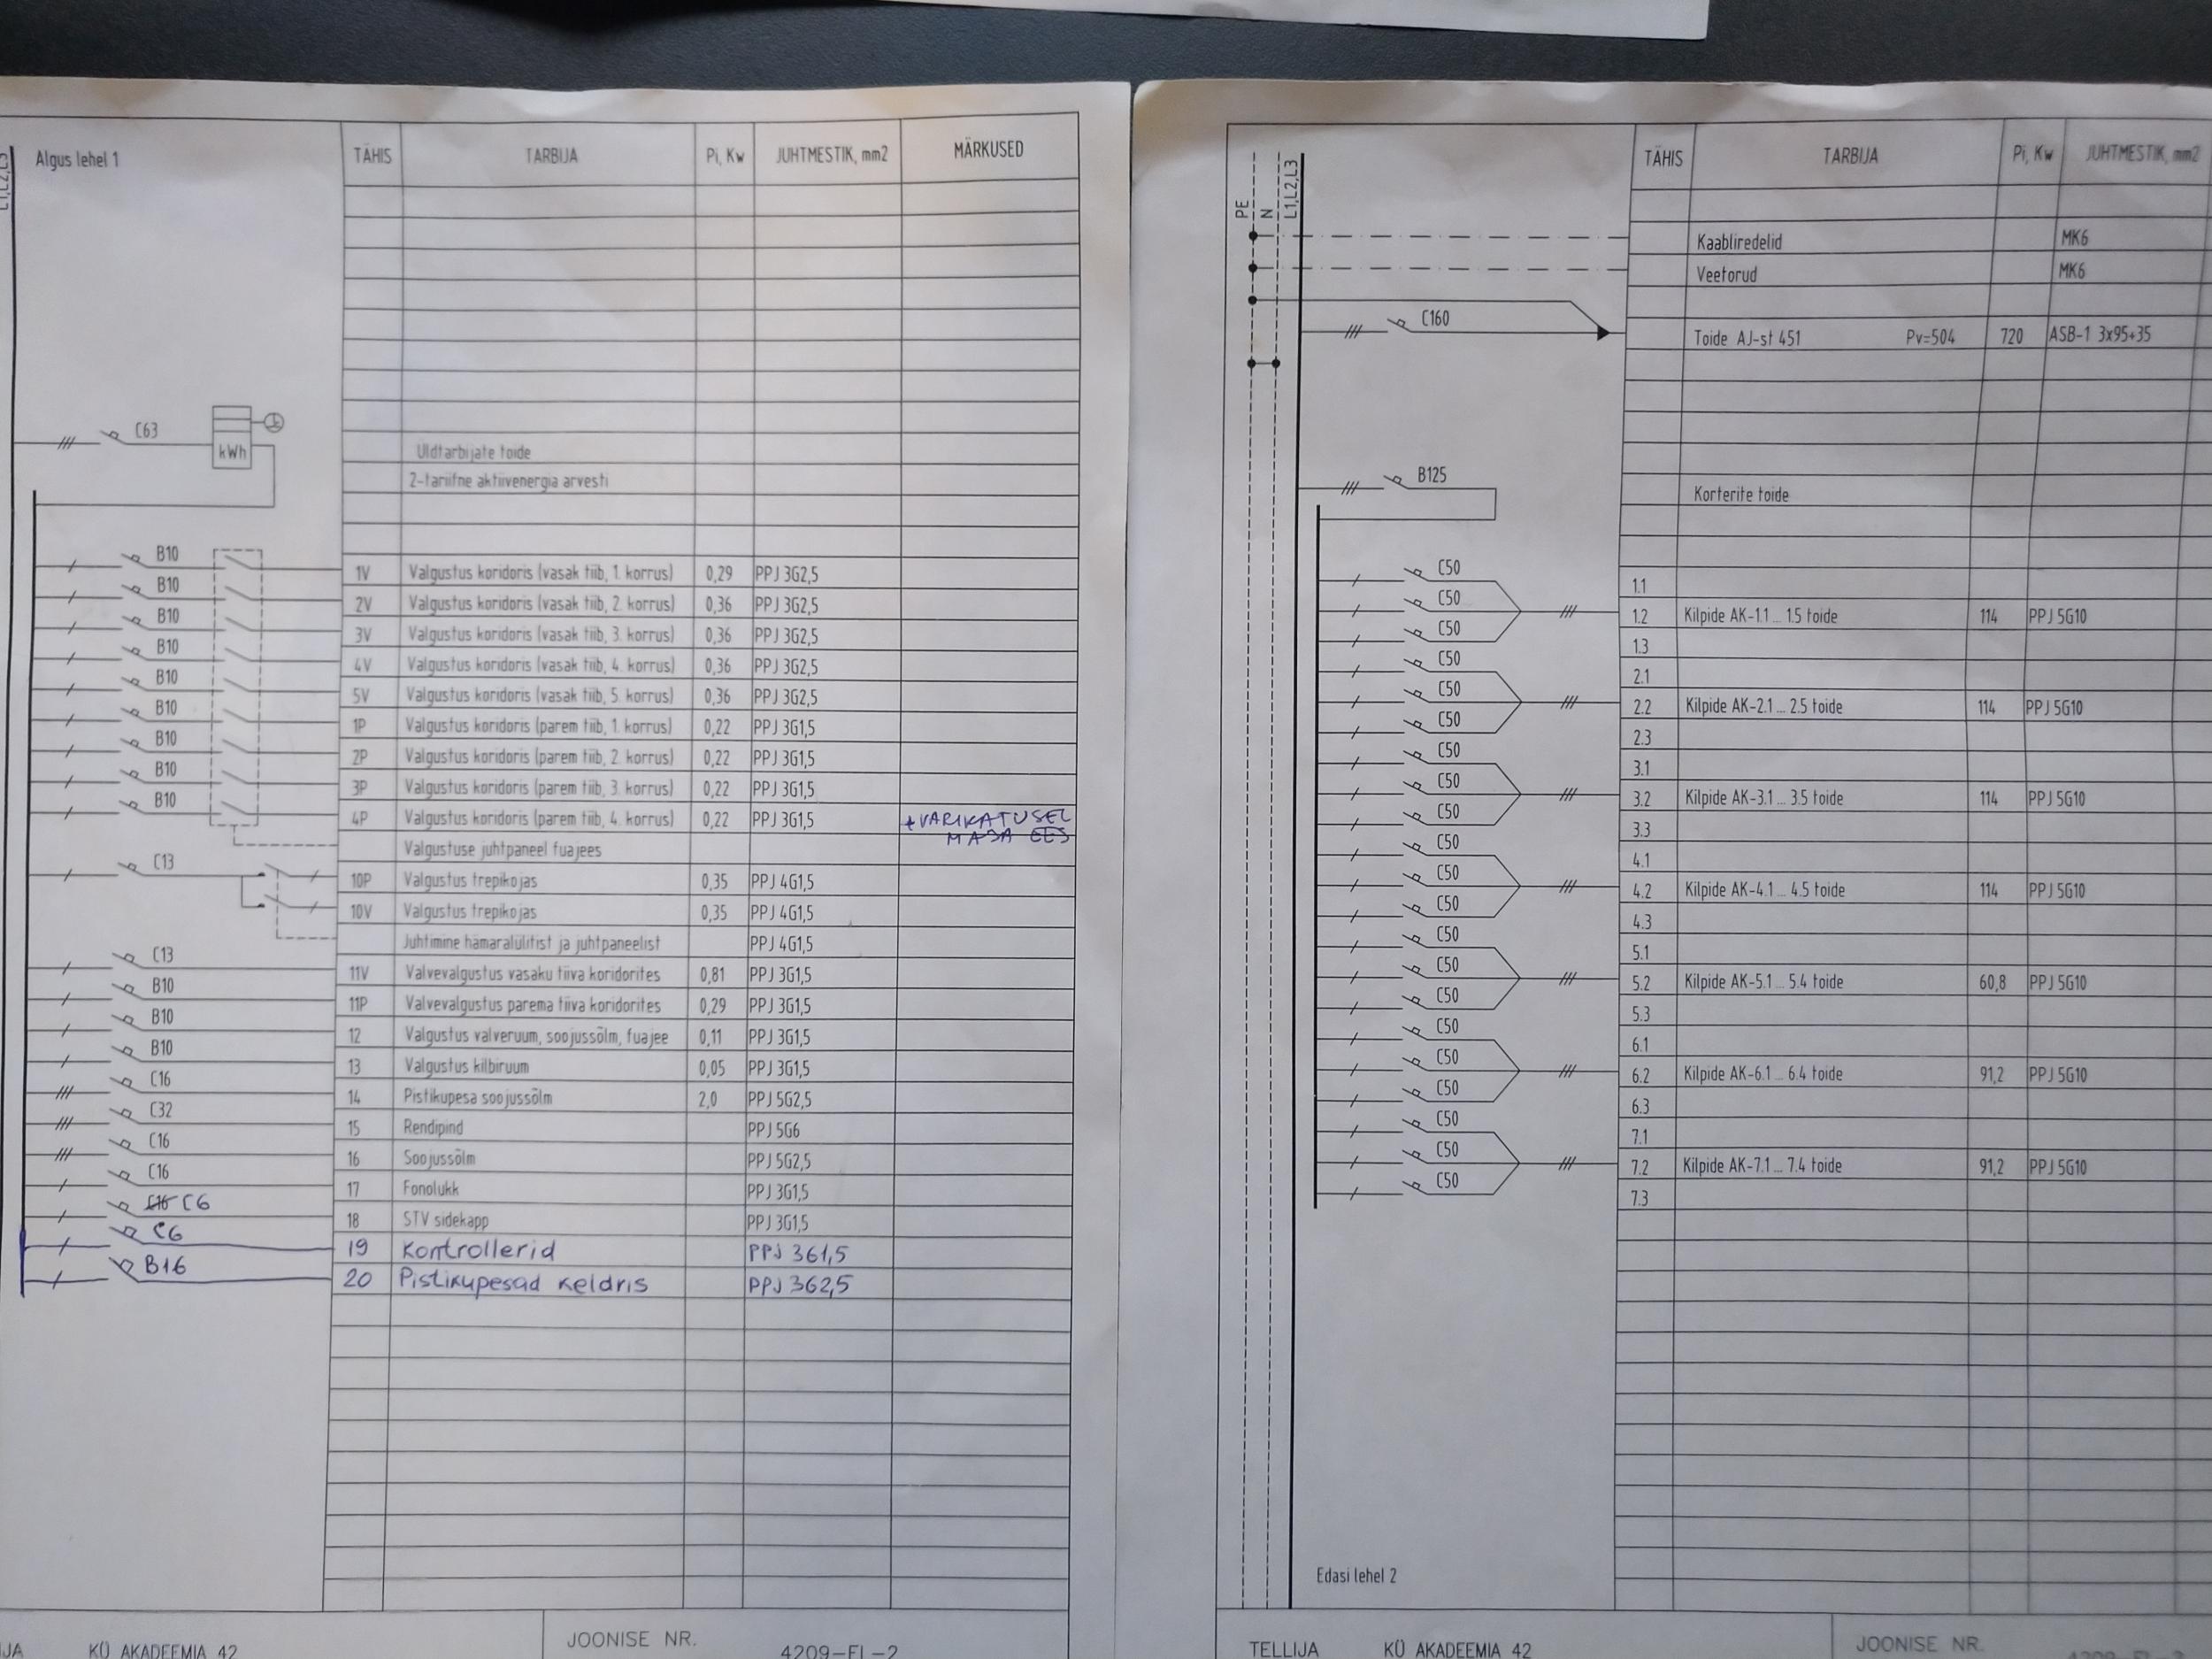 Algus lehel 1
L1,L2,L3
TÄHIS TARBIJA Pi, Kw JUHTMESTIK, mm2 MÄRKUSED
C63
kWh
Üldtarbijate toide
2-tariifne aktiivenergia arvesti
B10 1V Valgustus koridoris (vasak tiib, 1. korrus) 0,29 PPJ 3G2,5
B10 2V Valgustus koridoris (vasak tiib, 2. korrus) 0,36 PPJ 3G2,5
B10 3V Valgustus koridoris (vasak tiib, 3. korrus) 0,36 PPJ 3G2,5
B10 4V Valgustus koridoris (vasak tiib, 4. korrus) 0,36 PPJ 3G2,5
B10 5V Valgustus koridoris (vasak tiib, 5. korrus) 0,36 PPJ 3G2,5
B10 1P Valgustus koridoris (parem tiib, 1. korrus) 0,22 PPJ 3G1,5
B10 2P Valgustus koridoris (parem tiib, 2. korrus) 0,22 PPJ 3G1,5
B10 3P Valgustus koridoris (parem tiib, 3. korrus) 0,22 PPJ 3G1,5
B10 4P Valgustus koridoris (parem tiib, 4. korrus) 0,22 PPJ 3G1,5 +VARIKATUSEL
MAJA EES
Valgustuse juhtpaneel fuajees
C13 10P Valgustus trepikojas 0,35 PPJ 4G1,5
10V Valgustus trepikojas 0,35 PPJ 4G1,5
Juhtimine hämaralülitist ja juhtpaneelist PPJ 4G1,5
C13 11V Valvevalgustus vasaku tiiva koridorites 0,81 PPJ 3G1,5
B10 11P Valvevalgustus parema tiiva koridorites 0,29 PPJ 3G1,5
B10 12 Valgustus valveruum, soojussõlm, fuajee 0,11 PPJ 3G1,5
B10 13 Valgustus kilbiruum 0,05 PPJ 3G1,5
C16 14 Pistikupesa soojussõlm 2,0 PPJ 5G2,5
C32 15 Rendipind PPJ 5G6
C16 16 Soojussõlm PPJ 5G2,5
C16 17 Fonolukk PPJ 3G1,5
C16 C6 18 STV sidekapp PPJ 3G1,5
C6 19 Kontrollerid PPJ 3G1,5
B16 20 Pistikupesad keldris PPJ 3G2,5
IJA KÜ AKADEEMIA 42 JOONISE NR. 4209-EL-2
PE N L1,L2,L3
TÄHIS TARBIJA Pi, Kw JUHTMESTIK, mm2
Kaabliredelid MK6
Veetorud MK6
C160 Toide AJ-st 451 Pv=504 720 ASB-1 3x95+35
B125
Korterite toide
C50 1.1
C50 1.2 Kilpide AK-1.1 ... 1.5 toide 114 PPJ 5G10
C50 1.3
C50 2.1
C50 2.2 Kilpide AK-2.1 ... 2.5 toide 114 PPJ 5G10
C50 2.3
C50 3.1
C50 3.2 Kilpide AK-3.1 ... 3.5 toide 114 PPJ 5G10
C50 3.3
C50 4.1
C50 4.2 Kilpide AK-4.1 ... 4.5 toide 114 PPJ 5G10
C50 4.3
C50 5.1
C50 5.2 Kilpide AK-5.1 ... 5.4 toide 60,8 PPJ 5G10
C50 5.3
C50 6.1
C50 6.2 Kilpide AK-6.1 ... 6.4 toide 91,2 PPJ 5G10
C50 6.3
C50 7.1
C50 7.2 Kilpide AK-7.1 ... 7.4 toide 91,2 PPJ 5G10
C50 7.3
Edasi lehel 2
TELLIJA KÜ AKADEEMIA 42 JOONISE NR.